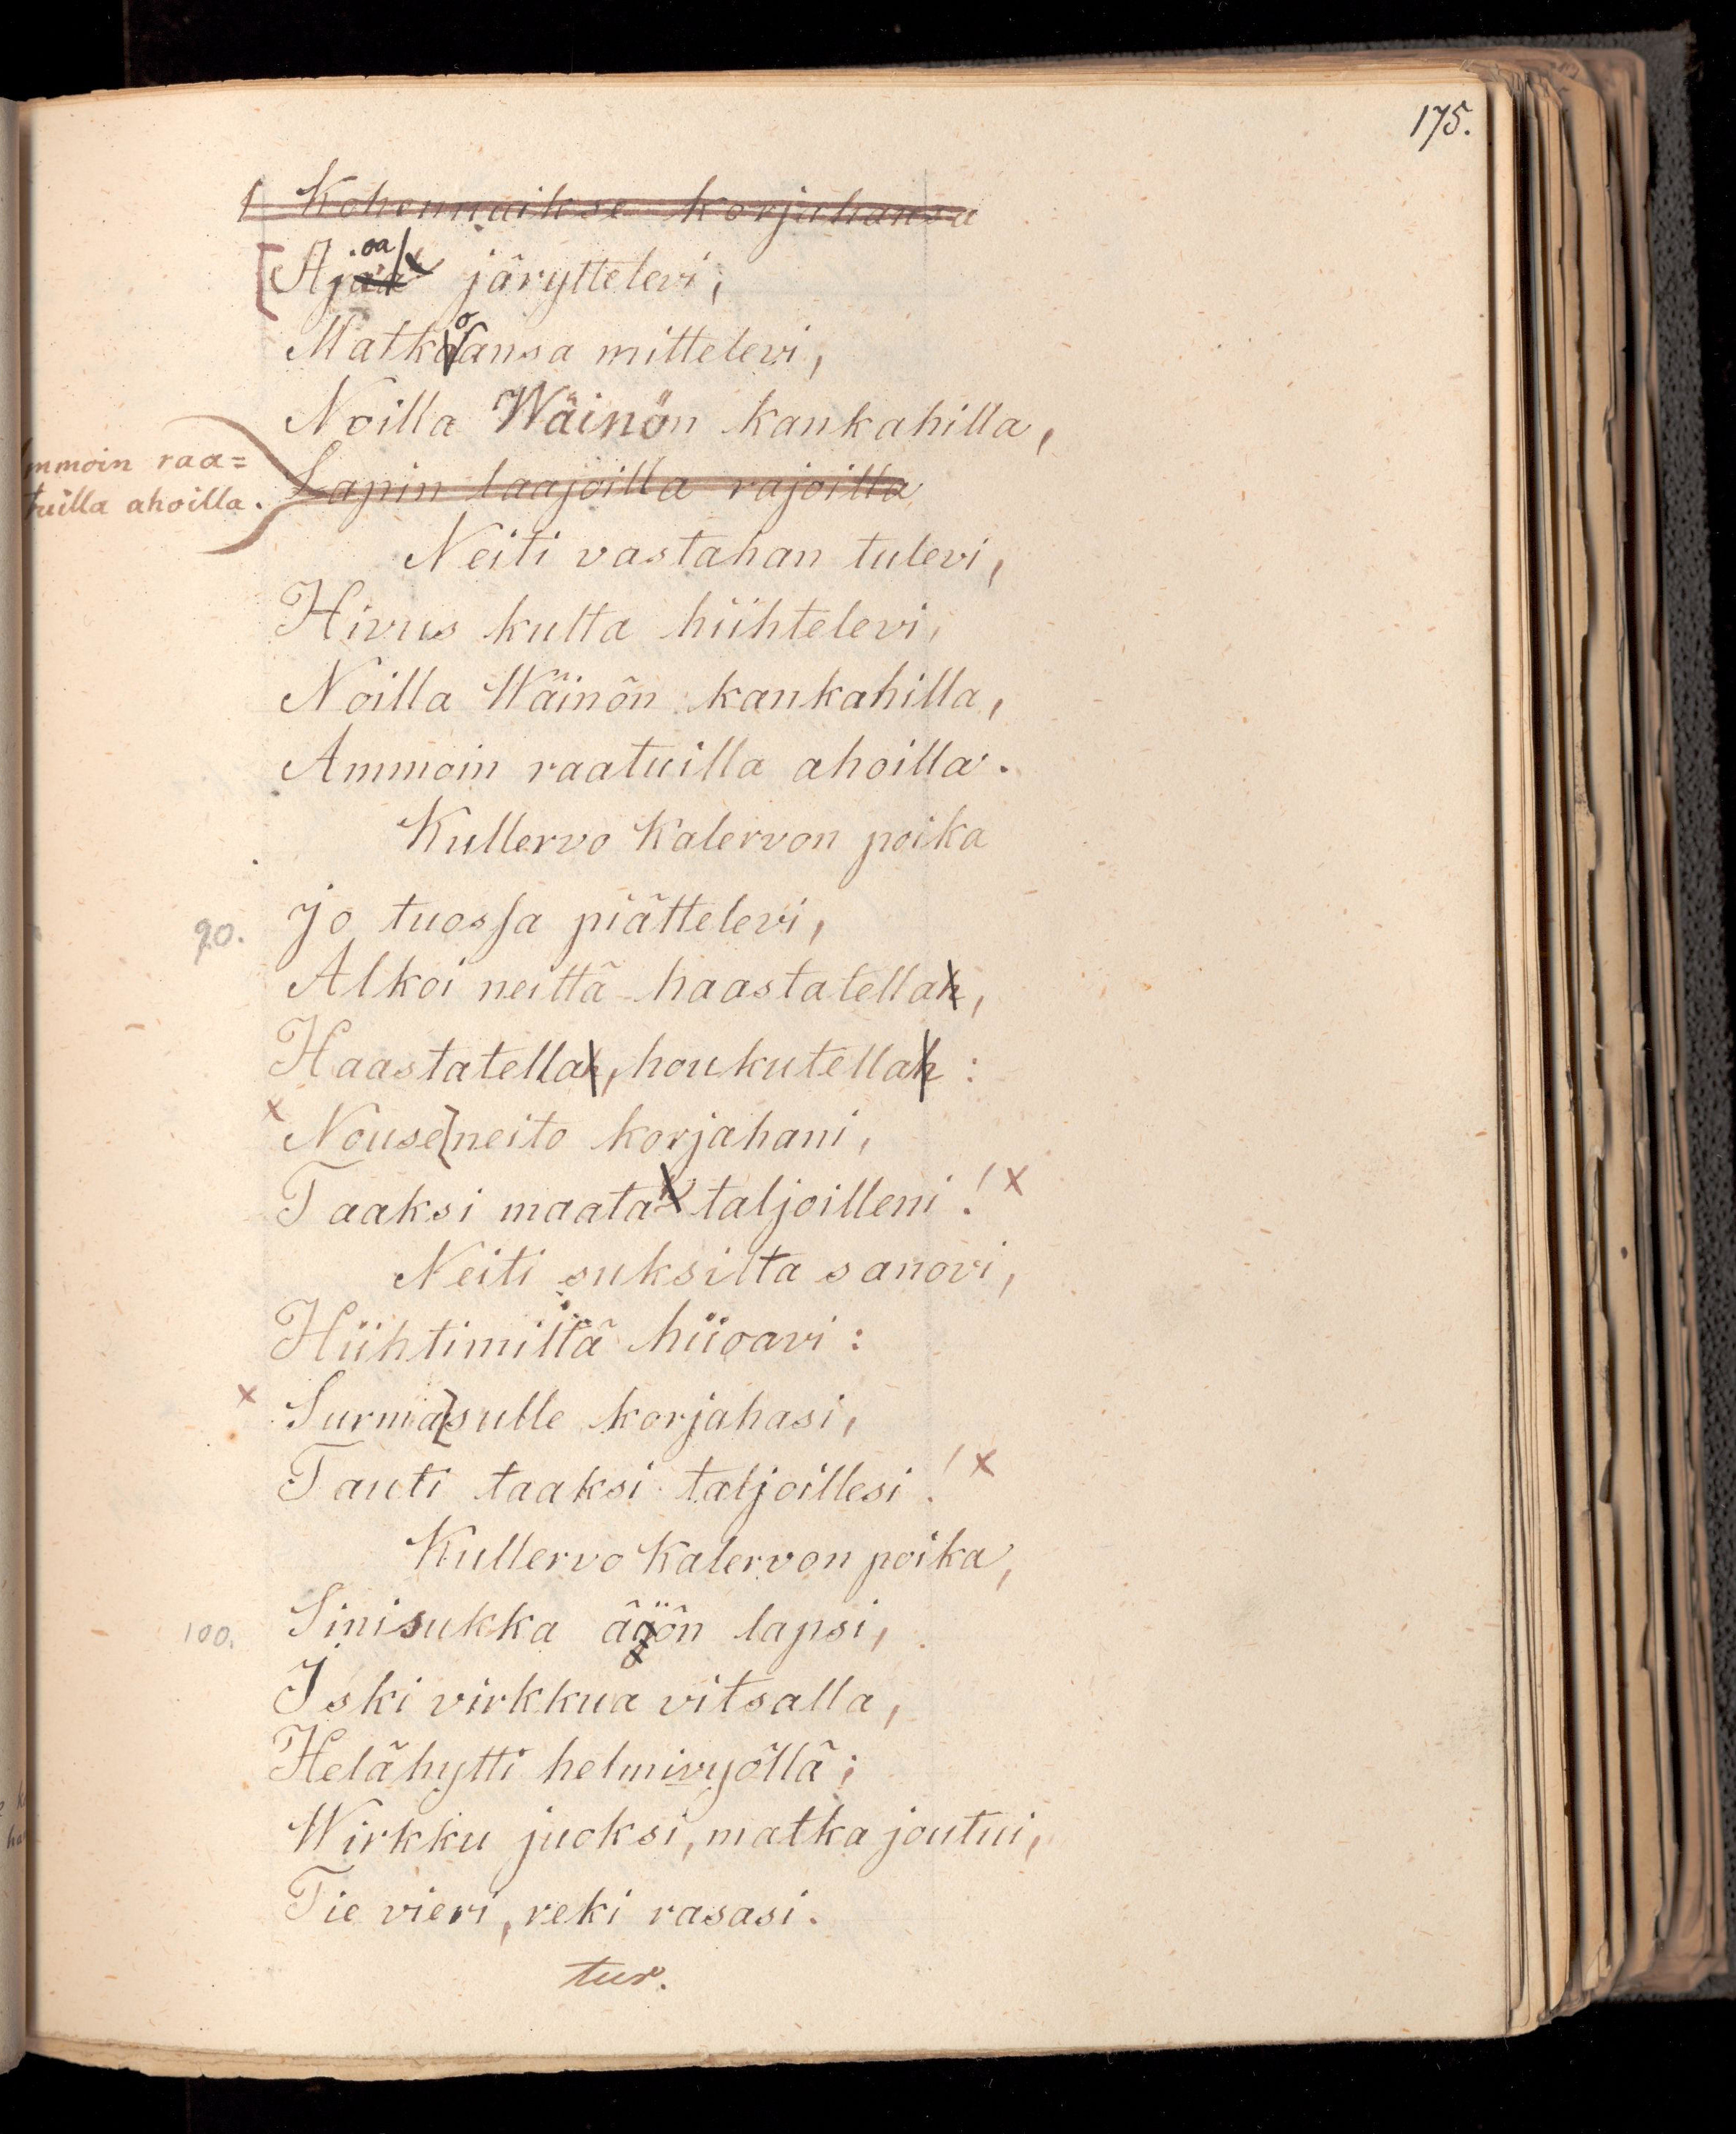 175.
Kohennaikse korjahansa
Ajoa järyttelevi;
Matkoansa mittelevi,
Noilla Wäinön kankahilla,
mmoin raa=
tuilla ahoilla.
Lapin laajoilla rajoilla
Neiti vastahan tulevi,
Hivus kulta hiihtelevi,
Noilla Wäinön kankahilla,
Ammoin raatuilla ahoilla.
Kullervo Kalervon poika
90. Jo tuossa piättelevi,
Alkoi neittä haastatellah,
Haastatellah, houkutellah:
x Nouse neito korjahani,
Taaksi maata taljoilleni! x
Neiti suksilta sanovi,
Hiihtimiltä hiioavi:
x Surma sulle korjahasi,
Tauti taaksi taljoillesi! x
Kullervo Kalervon poika,
100. Sinisukka äijön lapsi,
Iski virkkua vitsalla,
Helähytti helmivyöllä;
Wirkku juoksi, matka joutui,
Tie vieri, reki rasasi.
tur.